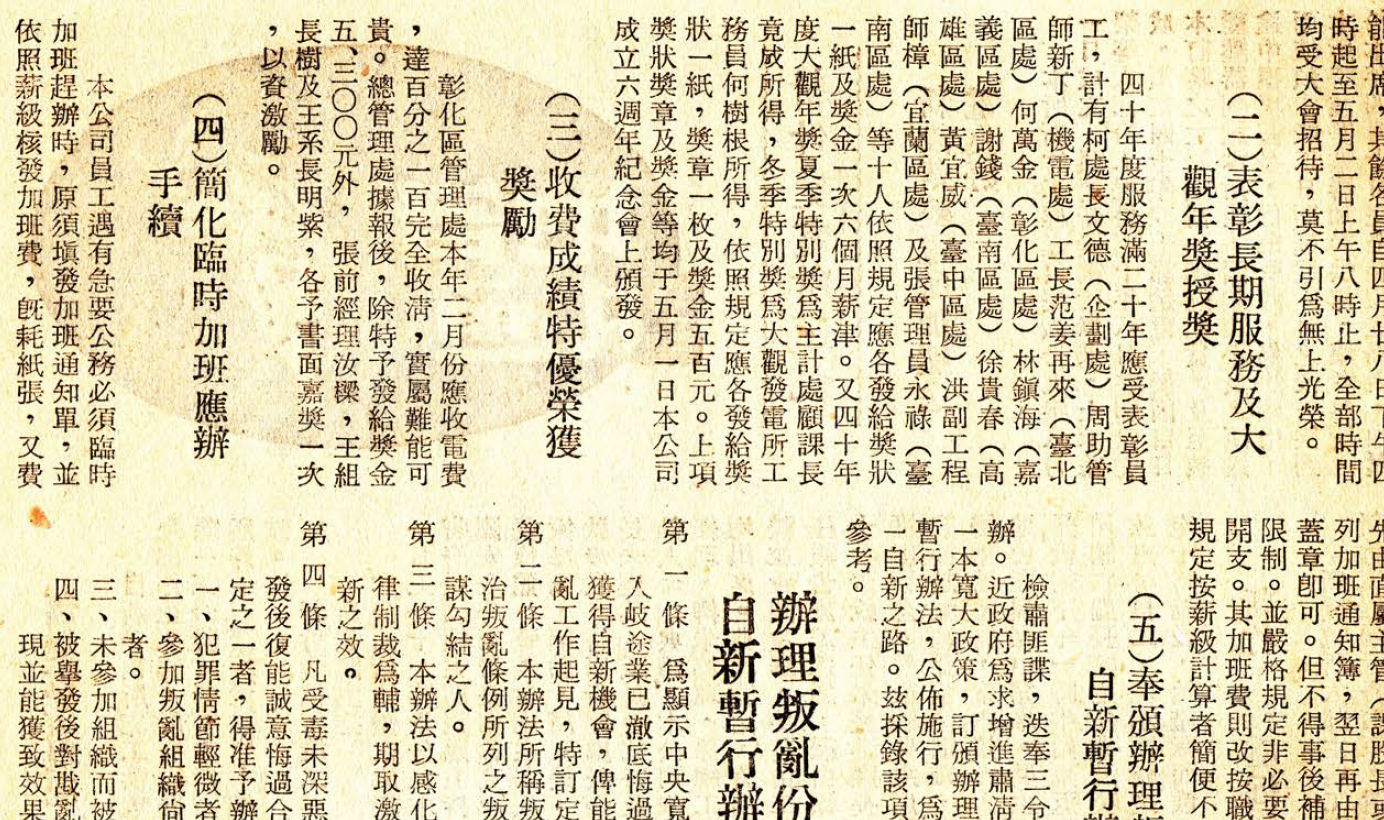 能出席，其餘各員自四月廿八日下午四
時起至五月二日上午八時止，全部時間
均受大會招待，莫不引爲無上光榮。
（二）表彰長期服務及大
觀年獎授獎
四十年度服務滿二十年應受表彰員
工，計有柯處長文德（企劃處）周助管
師新丁（機電處）工長范姜再來（臺北
區處）何萬金（彰化區處）林鎭海（嘉
義區處）謝錢（臺南區處）徐貴春（高
雄區處）黃宜威（臺中區處）洪副工程
師樟（宜蘭區處）及張管理員永祿（臺
南區處）等十人依照規定應各發給獎狀
一紙及獎金一次六個月薪津。又四十年
度大觀年獎夏季特別獎爲主計處顧課長
竟成所得，冬季特別獎爲大觀發電所工
務員何樹根所得，依照規定應各發給獎
狀一紙，獎章一枚及獎金五百元。上項
獎狀獎章及獎金等均于五月一日本公司
成立六週年紀念會上頒發。
（三）收費成績特優榮獲
獎勵
彰化區管理處本年二月份應收電費
，達百分之一百完全收淸，實屬難能可
貴。總管理處據報後，除特予發給獎金
五、三〇〇元外，張前經理汝樑，王組
長樹及王系長明紫，各予書面嘉獎一次
，以資激勵。
（四）簡化臨時加班應辦
手續
本公司員工遇有急要公務必須臨時
加班趕辦時，原須塡發加班通知單，並
依照薪級核發加班費，旣耗紙張，又費
先由直屬主管（課股長或
列加班通知簿，翌日再由
蓋章卽可。但不得事後補
限制。並嚴格規定非必要
開支。其加班費則改按職
規定按薪級計算者簡便不
（五）奉頒辦理
自新暫行
檢肅匪諜，迭奉三令
辦。近政府爲求增進肅淸
一本寬大政策，訂頒辦理
暫行辦法，公佈施行，爲
一自新之路。茲採錄該項
參考。
辦理叛亂份
自新暫行辦
第一條　爲顯示中央寬
入岐途業已澈底悔過
獲得自新機會，俾能
亂工作起見，特訂定
第二條　本辦法所稱叛
治叛亂條例所列之叛
謀勾結之人。
第三條　本辦法以感化
律制裁爲輔，期取激
新之效。
第四條　凡受毒未深惡
發後復能誠意悔過合
定之一者，得准予辦
一、犯罪情節輕微者
二、參加叛亂組織尙
者。
三、未參加組織而被
四、被擧發後對戡亂
現並能獲致效果